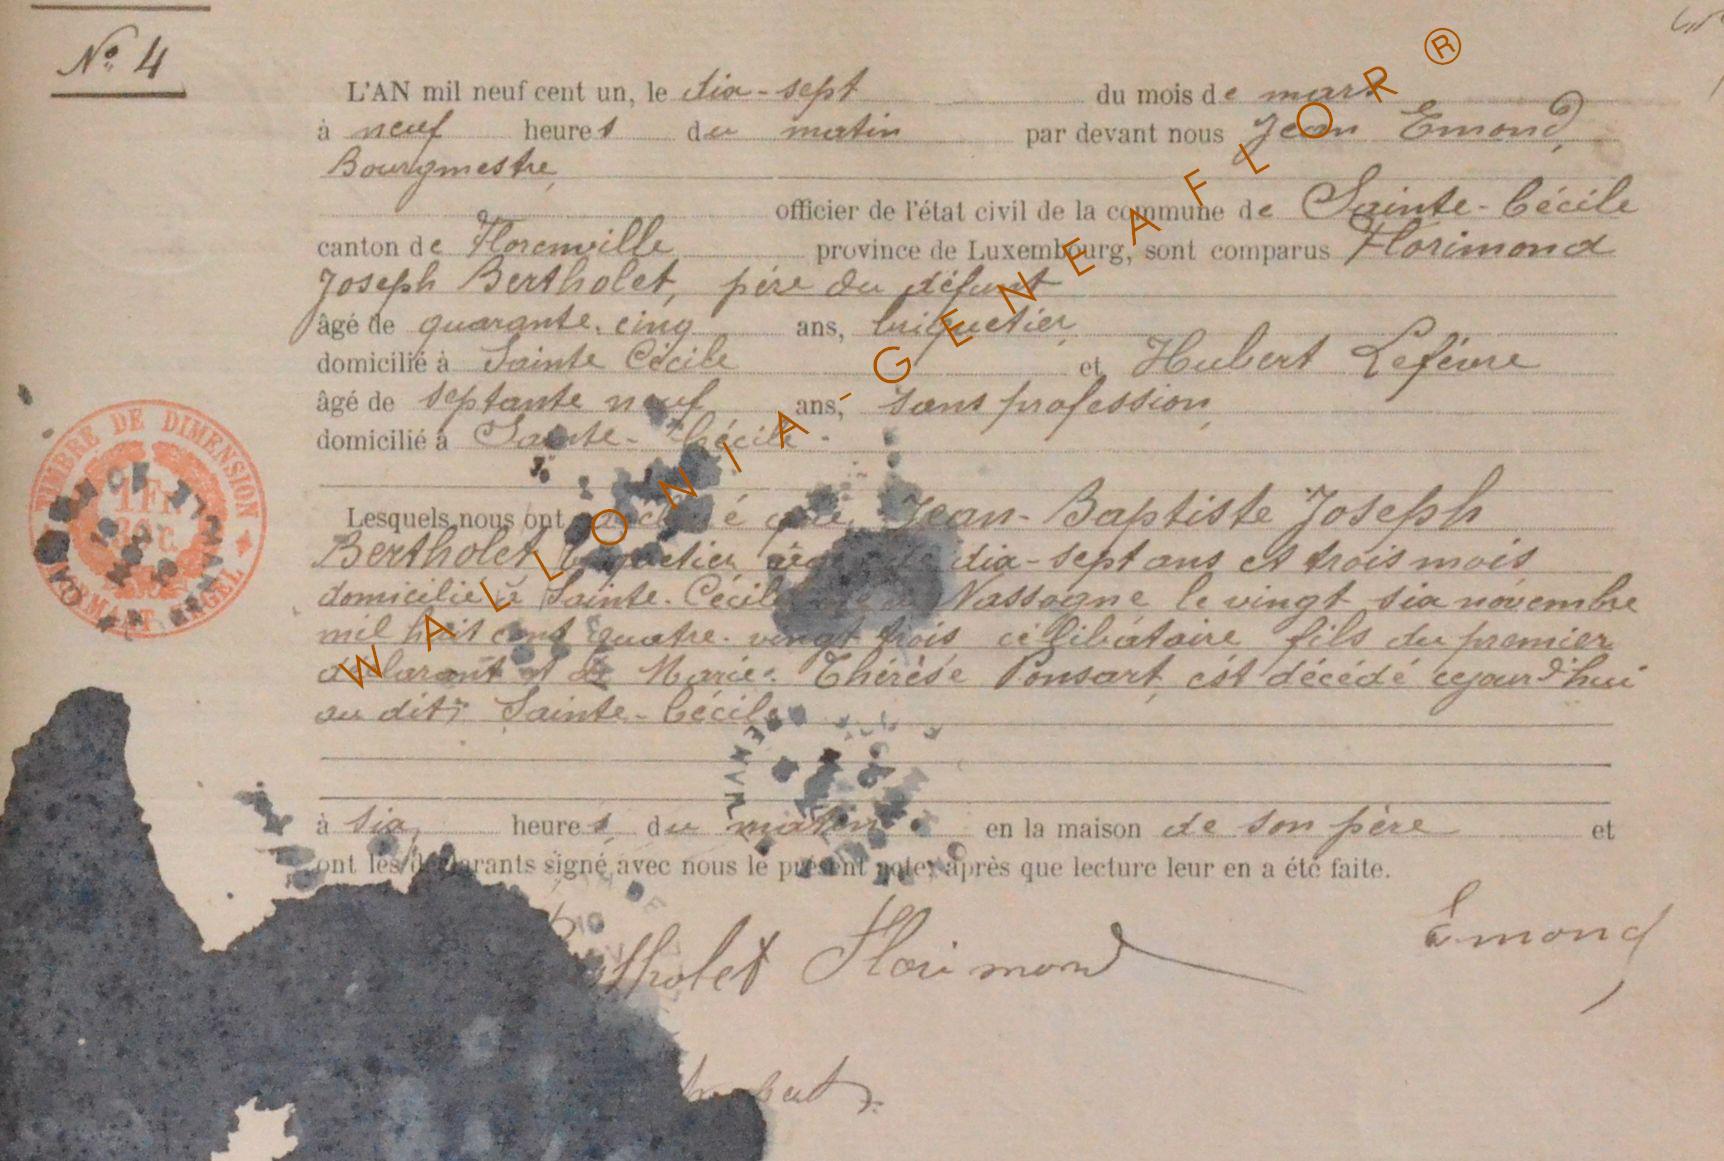 N° 4
L'AN mil neuf cent un, le dix-sept du mois de mars
à neuf heures du matin par devant nous Jean Emond,
Bourgmestre,
officier de l'état civil de la commune de Sainte-Cécile
canton de Florenville province de Luxembourg, sont comparus Florimond
Joseph Bertholet, père du défunt
âgé de quarante-cinq ans, briquetier,
domicilié à Sainte Cécile et Hubert Lefèvre
âgé de septante neuf ans, sans profession,
domicilié à Sainte-Cécile.
Lesquels nous ont déclaré que Jean-Baptiste Joseph
Bertholet briquetier âgé de dix-sept ans et trois mois
domicilié à Sainte-Cécile né à Nassogne le vingt six novembre
mil huit cent quatre-vingt trois, célibataire, fils du premier
déclarant et de Marie-Thérèse Ponsart, est décédé cejourd'hui
au dit Sainte-Cécile
à six heures du matin en la maison de son père et
ont les déclarants signé avec nous le présent acte, après que lecture leur en a été faite.
Bertholet Florimond
Emond
TIMBRE DE DIMENSION
1 Fr
WALLONIA-GENEAFLOR®